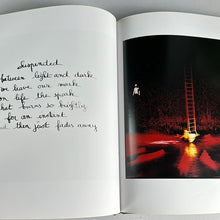 Suspended
between light and dark
we leave our mark
on life the spark
that burns so brightly
for an instant
and then just fades away